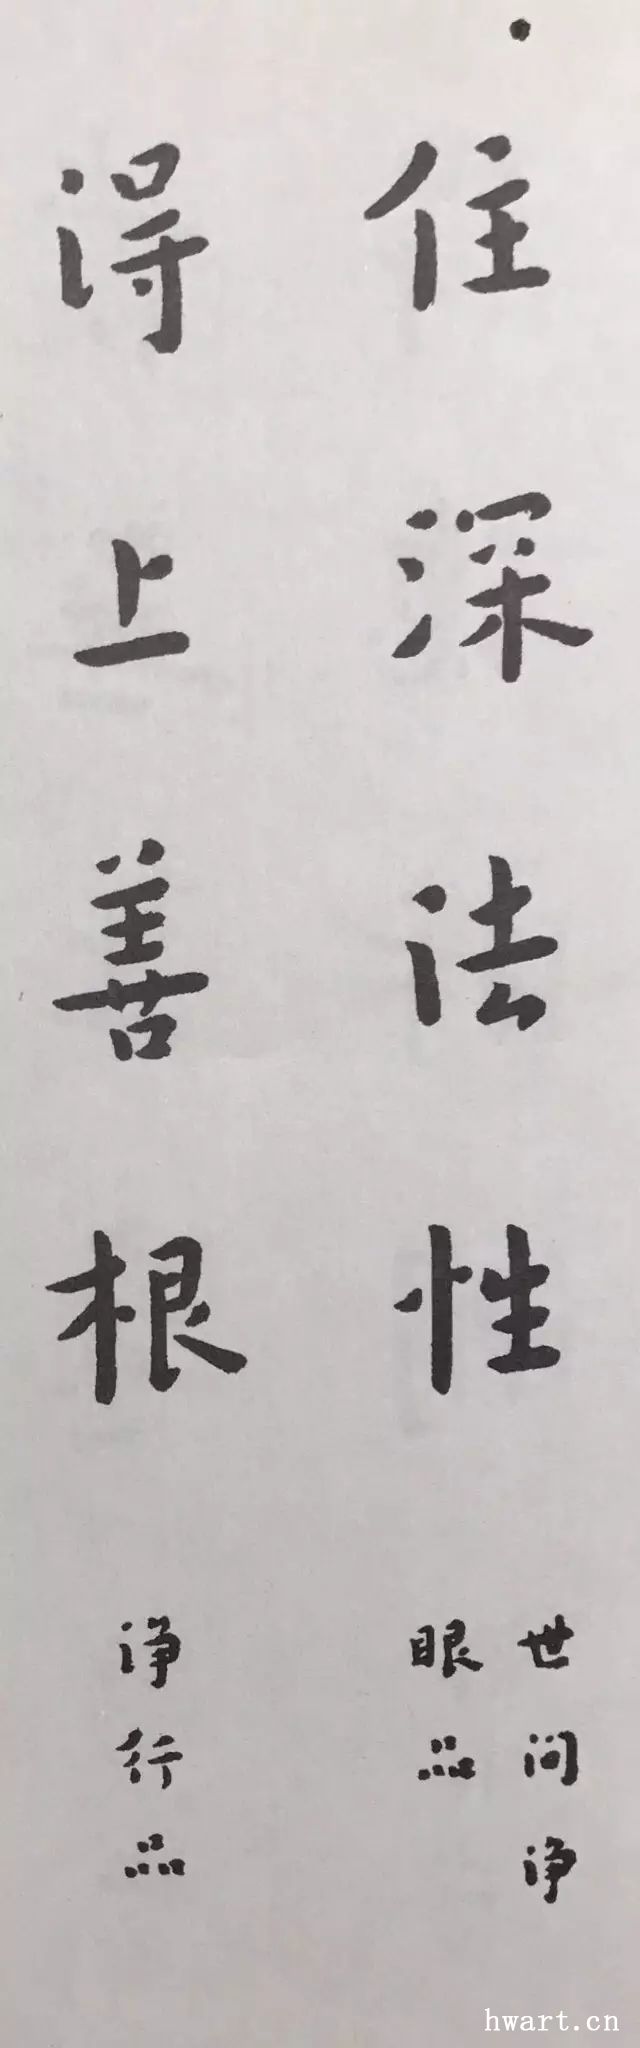 住深法性
世间净
眼品
得上善根
净行品
hwart.cn